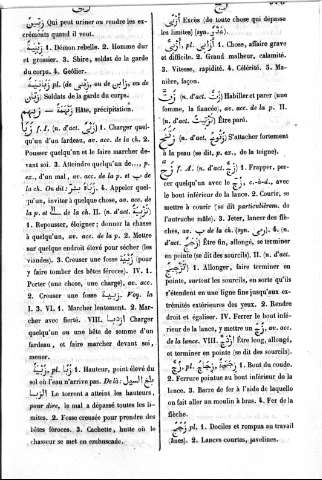 زبن Qui peut uriner ou rendre les ex-
créments quand il veut.
زبنية 1. Démon rebelle. 2. Homme dur
et grossier. 3. Sbire, soldat de la garde
du corps. 4. Geôlier.
زبانية pl. (de زبنى, ou de زابن, ou de
زبنية) Soldats de la garde du corps.
Hâte, précipitation.
زبى f. I. (n. d'act. زبى) 1. Charger quel-
qu'un d'un fardeau, av. acc. de la ch. 2.
Pousser quelqu'un et le faire marcher de-
vant soi. 3. Atteindre quelqu'un de..., p.
ex., d'un mal, av. acc. de la p. et ب de
la ch. On dit: 4. Appeler quel-
qu'un, inviter à quelque chose, av. acc. de
la p. et de la ch. II. (n. d'act. تزبية)
1. Repousser, éloigner; donner la chasse
à quelqu'un, av. acc. de la p. 2. Mettre
sur quelque endroit élevé pour sécher (les
viandes). 3. Creuser une fosse زبية (pour
y faire tomber des bêtes féroces). IV. 1.
Porter (une chose, une charge), av. acc.
2. Creuser une fosse زبية. Voy. la
I. 3. VI. 1. Marcher lentement. 2. Mar-
cher avec fierté. VIII. ازدبى Charger
quelqu'un ou une bête de somme d'un
fardeau, et faire marcher devant soi,
mener.
زبية, pl. زبى 1. Hauteur, point élevé du
sol où l'eau n'arrive pas. De là: بلغ السيل
الزبى Le torrent a atteint les hauteurs,
pour dire, le mal a dépassé toutes les li-
mites. 2. Fosse creusée pour prendre des
bêtes féroces. 3. Cachette, hutte où le
chasseur se met en embuscade.
أزبى Excès (de toute chose qui dépasse
les limites) (syn.
أزبى, pl. أزابى 1. Chose, affaire grave
et difficile. 2. Grand malheur, calamité.
3. Vitesse, rapidité. 4. Célérité. 5. Ma-
nière, façon.
زت (n. d'act. زت) Habiller et parer (une
femme, la fiancée), av. acc. de la p. II.
(n. d'act. Être paré.
(n. d'act. S'attacher fortement
à la peau (se dit, p. ex., de la teigne).
زج f. A. (n. d'act. زج) 1. Frapper, per-
cer quelqu'un avec le زج, c.-à-d., avec
le bout inférieur de la lance. 2. Courir, se
mettre à courir (se dit particulièrem. de
l'autruche mâle). 3. Jeter, lancer des flè-
ches, av. ب de la ch. (syn. 4. (n.
d'act. زجج) Être fin, allongé, se terminer
en pointe (se dit des sourcils). II. (n. d'act.
تزجيج) 1. Allonger, faire terminer en
pointe, surtout les sourcils, en sorte qu'ils
s'étendent en une ligne fine jusqu'aux ex-
trémités extérieures des yeux. 2. Rendre
droit et égaliser. IV. Ferrer le bout infé-
rieur de la lance, y mettre un زج, av. acc.
de la lance. VIII. Être long, allongé,
et terminer en pointe (se dit des sourcils).
زج, pl. زجاج, زججة 1. Bout du coude.
2. Ferrure pointue au bout inférieur de la
lance. 3. Barre de fer à l'aide de laquelle
on fait aller un moulin à bras. 4. Fer de la
flèche.
زجج pl. 1. Dociles et rompus au travail
(ânes). 2. Lances courtes, javelines.